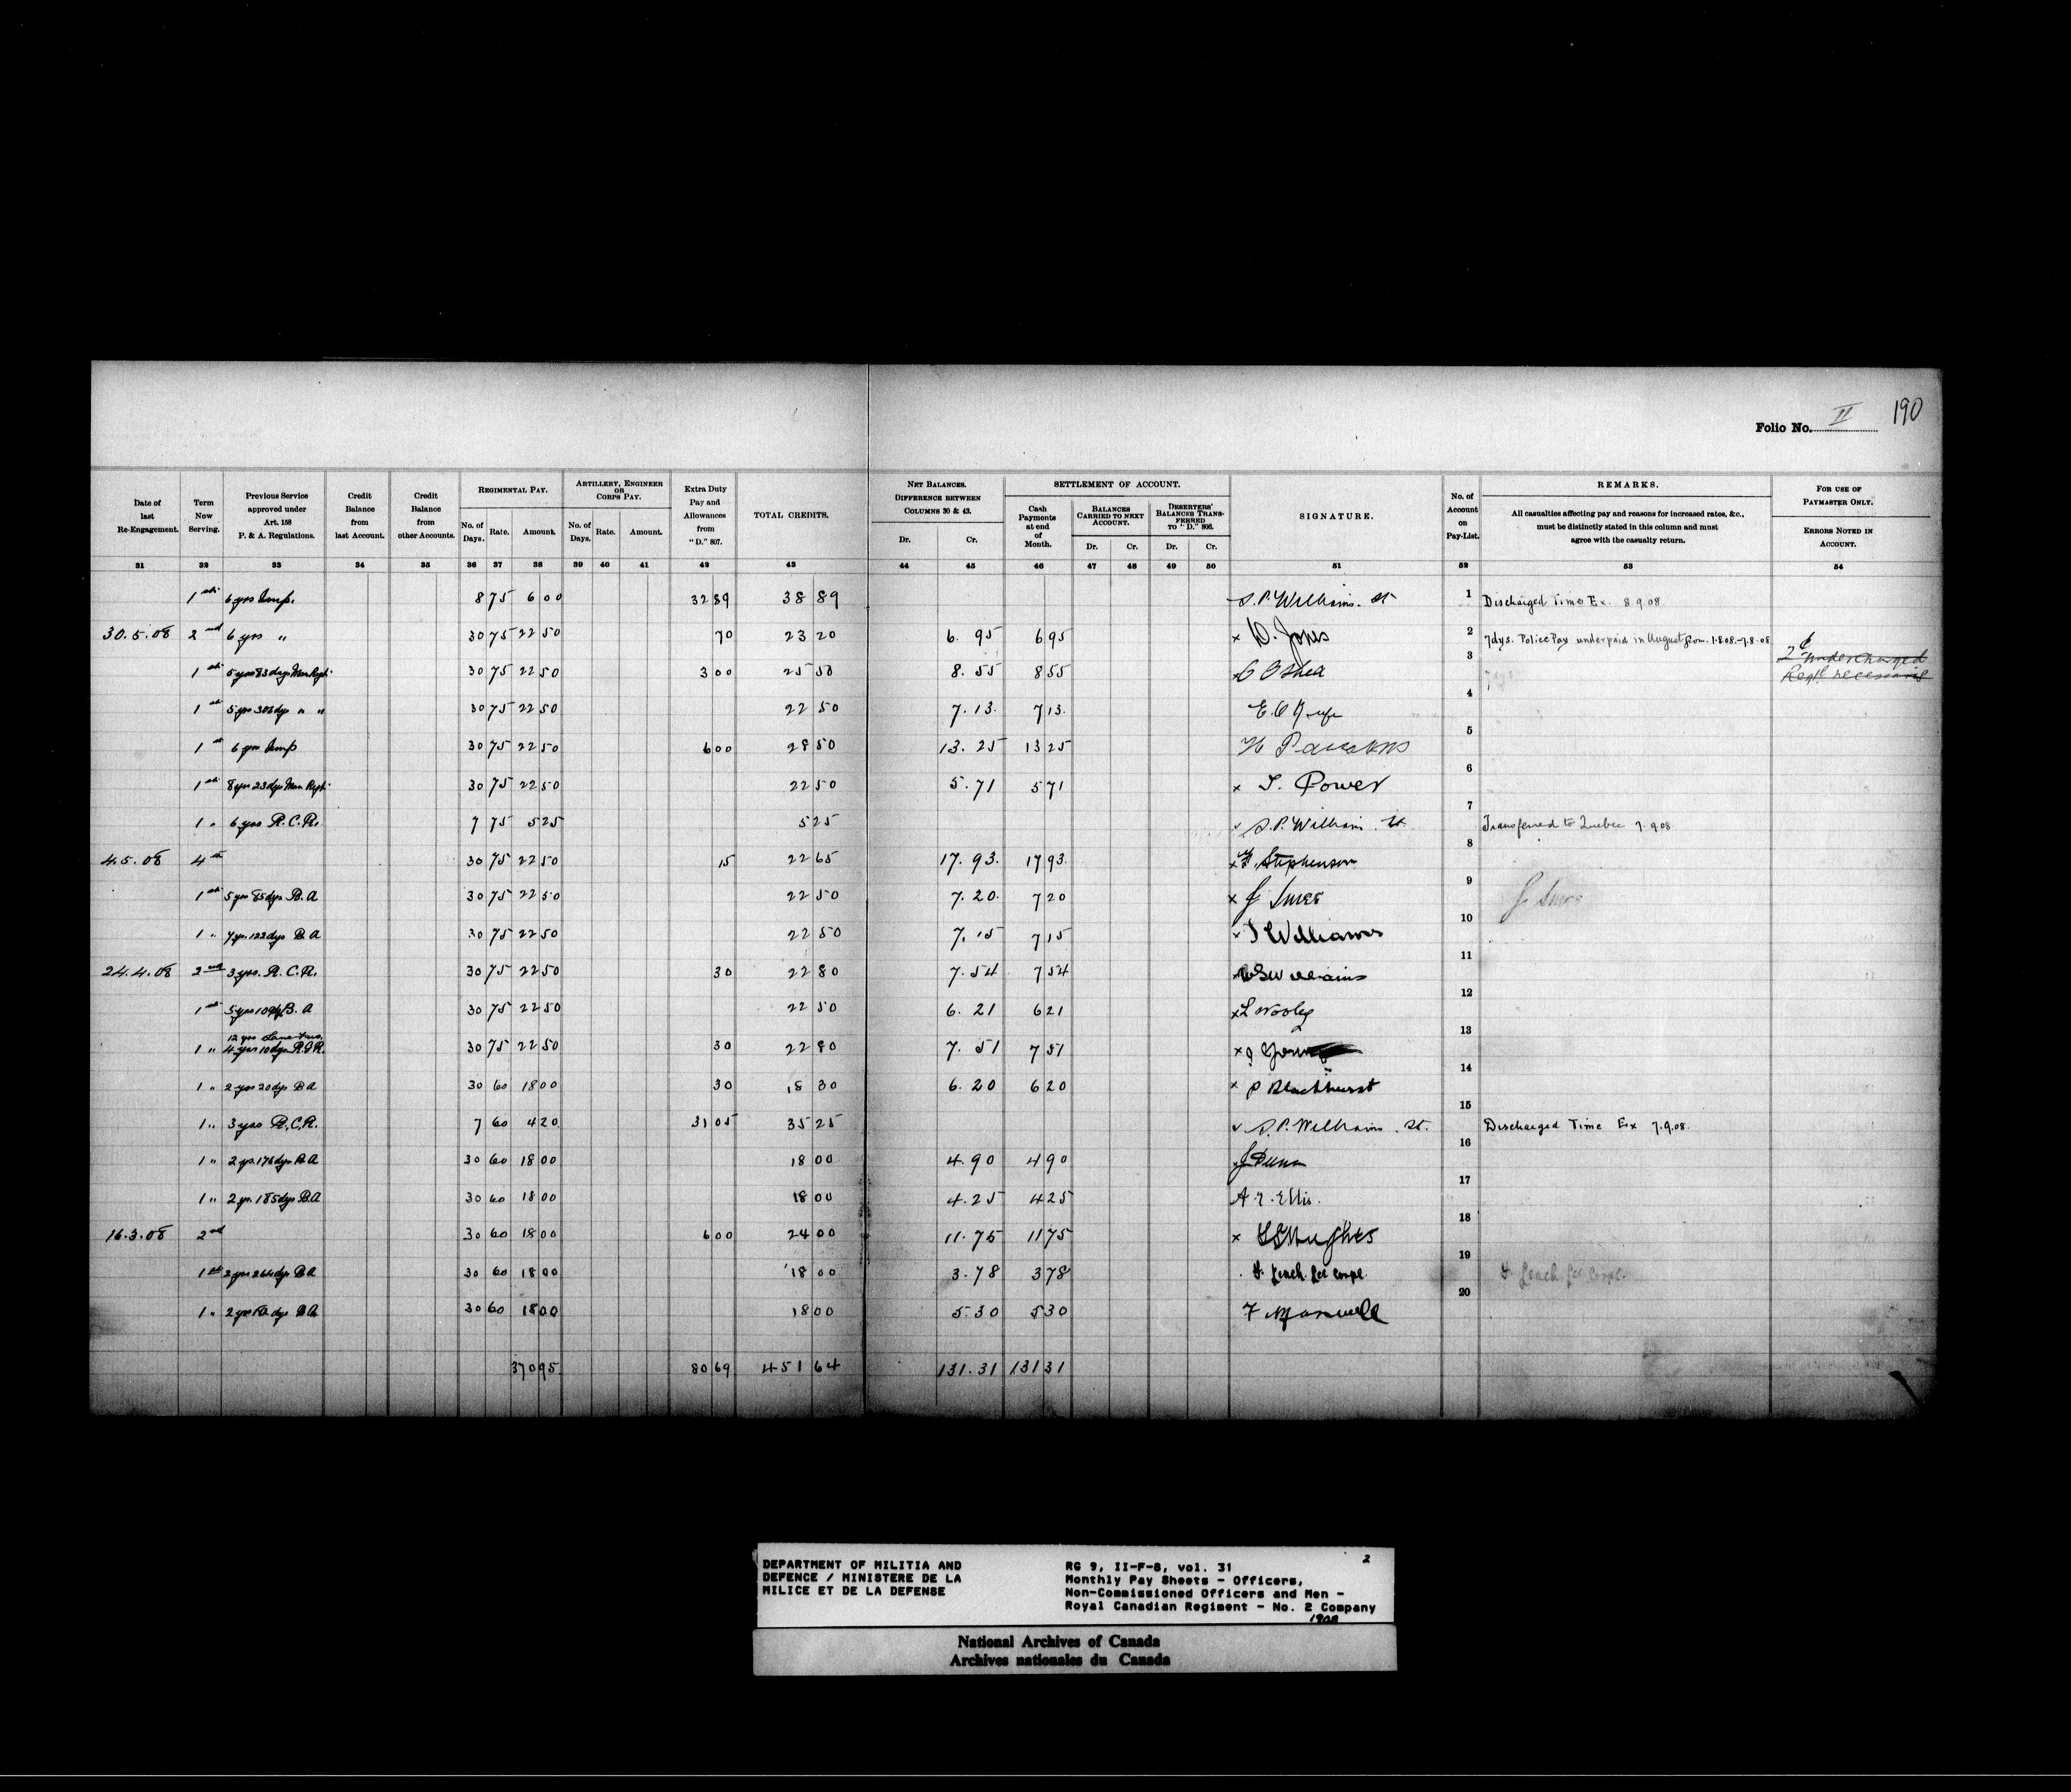 190
Folio No. II
Date of last Re-Engagement. Term Now Serving. Previous Service approved under Art. 158 P. & A. Regulations. Credit Balance from last Account. Credit Balance from other Accounts. REGIMENTAL PAY. No. of Days. Rate. Amount. ARTILLERY, ENGINEER OR CORPS PAY. No. of Days. Rate. Amount. Extra Duty Pay and Allowances from "D." 807. TOTAL CREDITS. NET BALANCES. DIFFERENCE BETWEEN COLUMNS 30 & 43. Dr. Cr. SETTLEMENT OF ACCOUNT. Cash Payments at end of Month. BALANCES CARRIED TO NEXT ACCOUNT. Dr. Cr. DESERTERS' BALANCES TRANSFERRED TO "D." 808. Dr. Cr. SIGNATURE. No. of Account on Pay-List. REMARKS. All casualties affecting pay and reasons for increased rates, &c., must be distinctly stated in this column and must agree with the casualty return. FOR USE OF PAYMASTER ONLY. ERRORS NOTED IN ACCOUNT.
31 32 33 34 35 36 37 38 39 40 41 42 43 44 45 46 47 48 49 50 51 52 53 54
1st 6 yrs Imp. 8 75 6 00 32 89 38 89 S.P. Williams. St 1 Discharged Time Ex. 8.9.08.
30.5.08 2nd 6 yrs " 30 75 22 50 70 23 20 6. 95 6 95 x D. Jones 2 7dys. Police Pay underpaid in August from 1.8.08.-7.8.08
1st 5 yrs 83 dys 30 75 22 50 3 00 25 50 8. 55 8 55 x C O Shea 3 2¢ undercharged
1st 5 yrs 302 dys " " 30 75 22 50 22 50 7. 13. 7 13. 4
1st 6 yrs Imp 30 75 22 50 6 00 28 50 13. 25 13 25 H Parsons 5
1st 8 yrs 23 dys 30 75 22 50 22 50 5. 71 5 71 x T. Power 6
1 " 6 yrs R.C.R. 7 75 5 25 5 25 S.P. Williams. St 7 Transferred to Quebec 7.9.08
4.5.08 4th 30 75 22 50 15 22 65 17. 93. 17 93. x Stephenson 8
1st 5 yrs 85 dys B.A 30 75 22 50 22 50 7. 20. 7 20 x J Imes 9
1 " 7 yrs. 122 dys B.A 30 75 22 50 22 50 7. 15 7 15 x T Williams 10
24.4.08 2nd 3 yrs. R.C.R. 30 75 22 50 30 22 80 7. 54 7 54 x Williams 11
1st 5 yrs B.A 30 75 22 50 22 50 6. 21 6 21 x L Wooley 12
12 yrs
1 " 4 yrs 10 dys 30 75 22 50 30 22 80 7. 51 7 51 x Young 13
1 " 2 yrs 20 dys B A 30 60 18 00 30 18 30 6. 20 6 20 x P Blackhurst 14
1 " 3 yrs R.C.R. 7 60 4 20 31 05 35 25 S.P. Williams. St. 15 Discharged Time Ex 7.9.08.
1 " 2 yrs. 176 dys B.A 30 60 18 00 18 00 4. 90 4 90 x J Dunn 16
1 " 2 yrs. 185 dys B.A 30 60 18 00 18 00 4. 25 4 25 A. E. Ellis. 17
16.3.08 2nd 30 60 18 00 6 00 24 00 11. 75 11 75 x Hughes 18
1st 2 yrs 264 dys B A 30 60 18 00 18 00 3. 78 3 78 19
1 " 2 yrs dys B A 30 60 18 00 18 00 5. 30 5 30 F Maxwell 20
370 95 80 69 451 64 131. 31 131 31
DEPARTMENT OF MILITIA AND
DEFENCE / MINISTERE DE LA
MILICE ET DE LA DEFENSE
2
RG 9, II-F-8, vol. 31
Monthly Pay Sheets - Officers,
Non-Commissioned Officers and Men -
Royal Canadian Regiment - No. 2 Company
1908
National Archives of Canada
Archives nationales du Canada